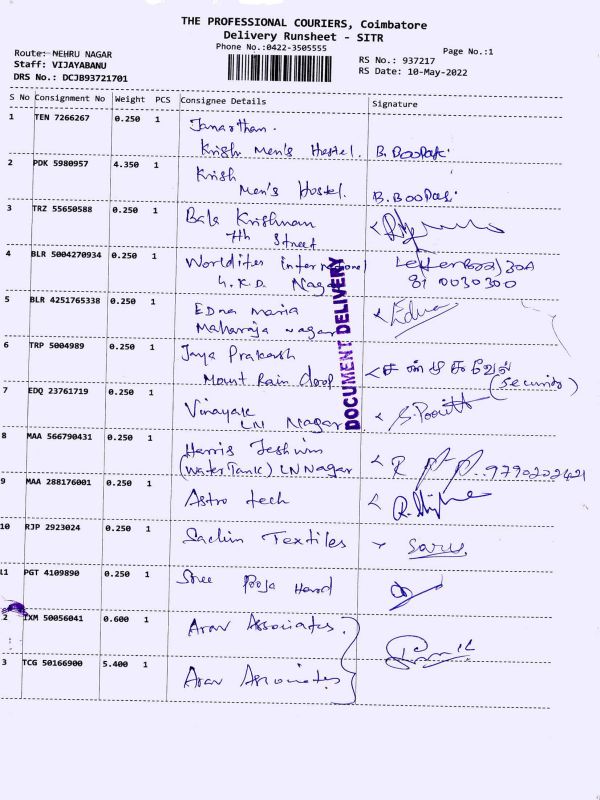 THE PROFESSIONAL COURIERS, Coimbatore
Delivery Runsheet - SITR
Phone No.:0422-3505555
Page No.:1
Route: NEHRU NAGAR
RS No.: 937217
Staff: VIJAYABANU
RS Date: 10-May-2022
DRS No.: DCJB93721701
S No Consignment No Weight PCS Consignee Details Signature
1 TEN 7266267 0.250 1 Janarthan.
Krish Men's Hostel.
2 PDK 5980957 4.350 1 Krish
Men's Hostel.
3 TRZ 55650588 0.250 1 Bala Krishnan
7th Street
4 BLR 5004270934 0.250 1 Worldites international
G.K.D. Nagar
5 BLR 4251765338 0.250 1 EDna maria Edna
Maharaja nagar
6 TRP 5004989 0.250 1 Jaya Prakash
Mount Rain (Security)
7 EDQ 23761719 0.250 1 Vinayak
LN Nagar
8 MAA 566790431 0.250 1 Harris
(Water Tank) LN Nagar 9790222421
9 MAA 288176001 0.250 1 Astro tech
10 RJP 2923024 0.250 1 Sachin Textiles
11 PGT 4109890 0.250 1 Sree Pooja
2 IXM 50056041 0.600 1 Arav Associates.
3 TCG 50166900 5.400 1 Arav Associates
DOCUMENT DELIVERY